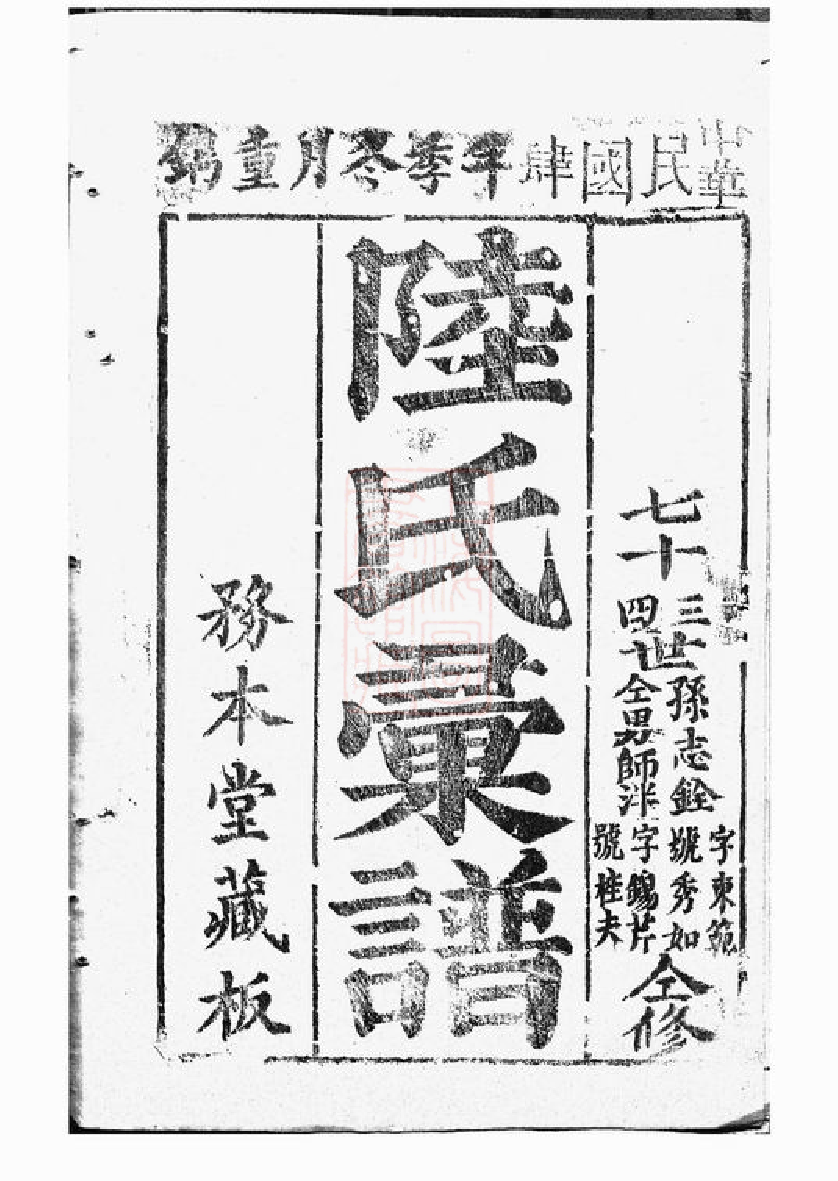 中華民國肆年季冬月重鐫
七十三世孫志銓字東範號秀如
四世仝男師泮字錫芹號桂夫
仝修
陸氏彙譜
務本堂藏板